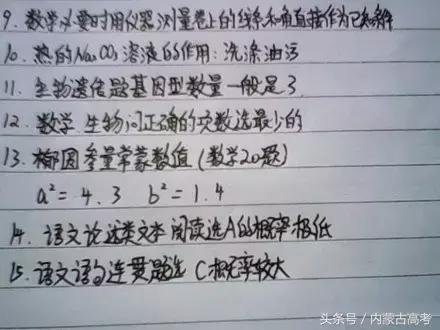 9. 数学必要时用仪器测量卷上的线条和角直接作为已知条件
10. 热的Na₂CO₃溶液的作用:洗涤油污
11. 生物遗传题基因型数量一般是3
12. 数学 生物问正确的项数选最少的
13. 椭圆参量常蒙数值(数学20题)
a²=4.3 b²=1.4
14. 语文论述类文本阅读选A的概率极低
15. 语文语句连贯题选C概率较大
头条号 / 内蒙古高考